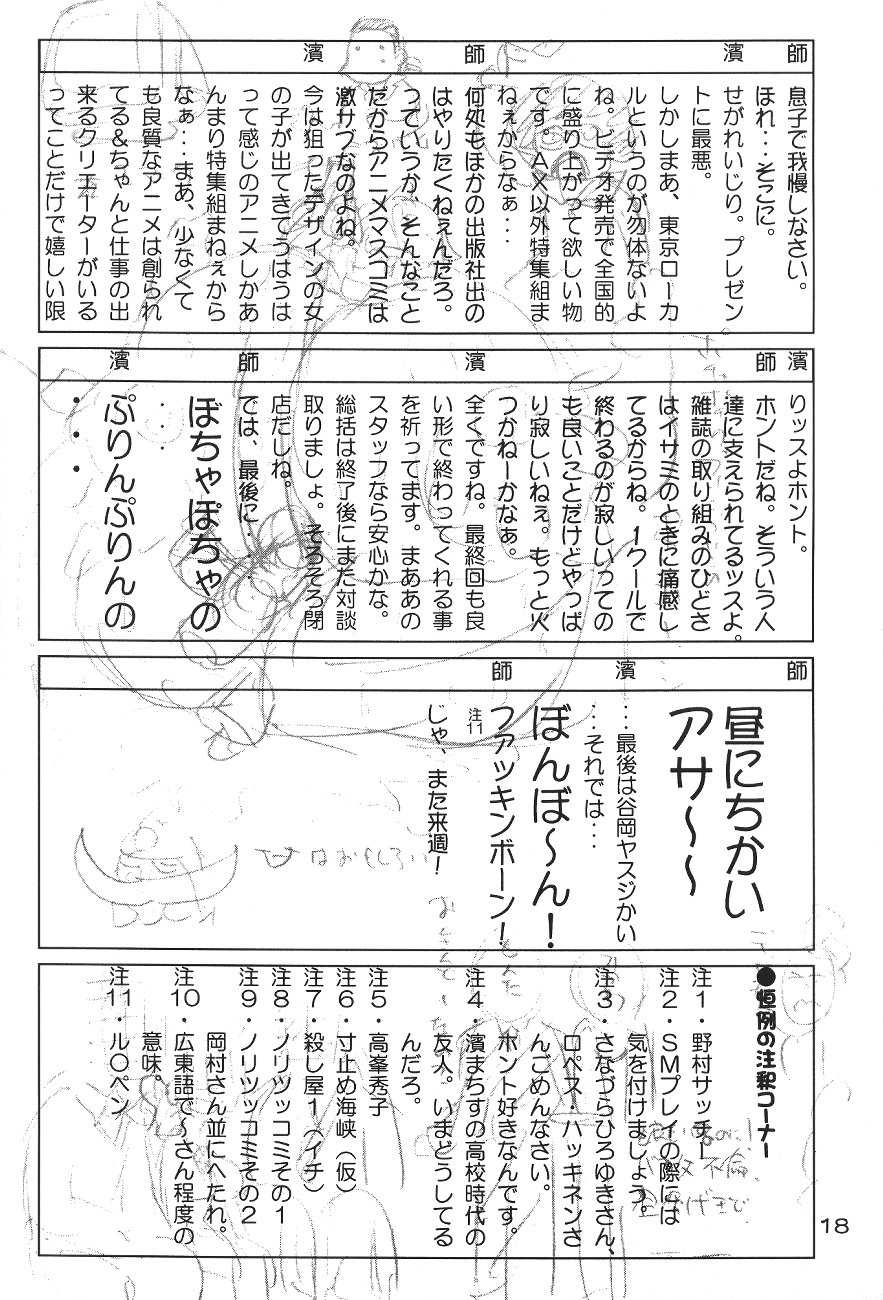 師　息子で我慢しなさい。
ほれ…そこに。
濱　せがれいじり。プレゼン
トに最悪。
しかしまあ、東京ローカ
ルというのが勿体ないよ
ね。ビデオ発売で全国的
に盛り上がって欲しい物
です。ＡＸ以外特集組ま
ねぇからなぁ…
師　何処もほかの出版社出の
はやりたくねぇんだろ。
っていうか、そんなこと
だからアニメマスコミは
激サブなのよね。
濱　今は狙ったデザインの女
の子が出てきてうはうは
って感じのアニメしかあ
んまり特集組まねぇから
なぁ…まあ、少なくて
も良質なアニメは創られ
てる&ちゃんと仕事の出
来るクリエーターがいる
ってことだけで嬉しい限
濱　りッスよホント。
師　ホントだね。そういう人
達に支えられてるッスよ。
雑誌の取り組みのひどさ
はイサミのときに痛感し
てるからね。１クールで
終わるのが寂しいっての
も良いことだけどやっぱ
り寂しいねぇ。もっと火
つかねーかなぁ。
濱　全くですね。最終回も良
い形で終わってくれる事
を祈ってます。まああの
スタッフなら安心かな。
総括は終了後にまた対談
取りましょ。そろそろ閉
店だしね。
師　では、最後に…
ぼちゃぽちゃの
…
濱　ぷりんぷりんの
・・・
師　昼にちかい
アサ～～
濱　…最後は谷岡ヤスジかい
…それでは…
ぼんぼ～ん！
師　ファッキンボーン！
注11
じゃ、また来週！
●恒例の注釈コーナー
注１・野村サッチー
注２・ＳＭプレイの際には
気を付けましょう。
注３・さなづらひろゆきさん、
ロペス・ハッキネンさ
んごめんなさい。
ホント好きなんです。
注４・濱まちすの高校時代の
友人。いまどうしてる
んだろ。
注５・高峯秀子
注６・寸止め海峡（仮）
注７・殺し屋１（イチ）
注８・ノリツッコミその１
注９・ノリツッコミその２
岡村さん並にへたれ。
注10・広東語で～さん程度の
意味。
注11・ル〇ペン
18